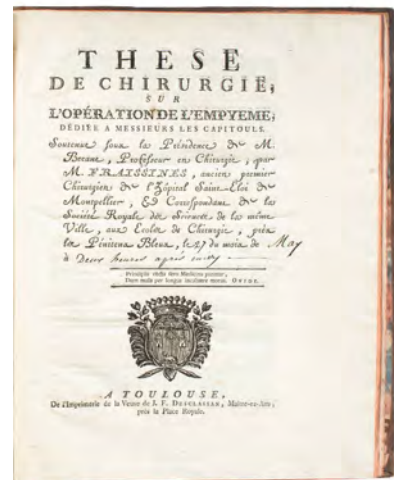 THESE
DE CHIRURGIE,
SUR
L'OPÉRATION DE L'EMPYEME,
DÉDIÉE A MESSIEURS LES CAPITOULS.
Soutenue sous la Présidence de M.
Becane, Professeur en Chirurgie, par
M. FRAISSINES, ancien premier
Chirurgien de l'Hôpital Saint-Eloi de
Montpellier, & Correspondant de la
Société Royale des Sciences de la même
Ville, aux Ecoles de Chirurgie, près
les Pénitens Bleus, le 27 du mois de May
à Deux heures après midy
Principiis obsta sero Medicina paratur,
Cum mala per longas invaluere moras. OVIDE.
A TOULOUSE,
De l'Imprimerie de la Veuve de J. F. DESCLASSAN, Maître-ès-Arts,
près la Place Royale.